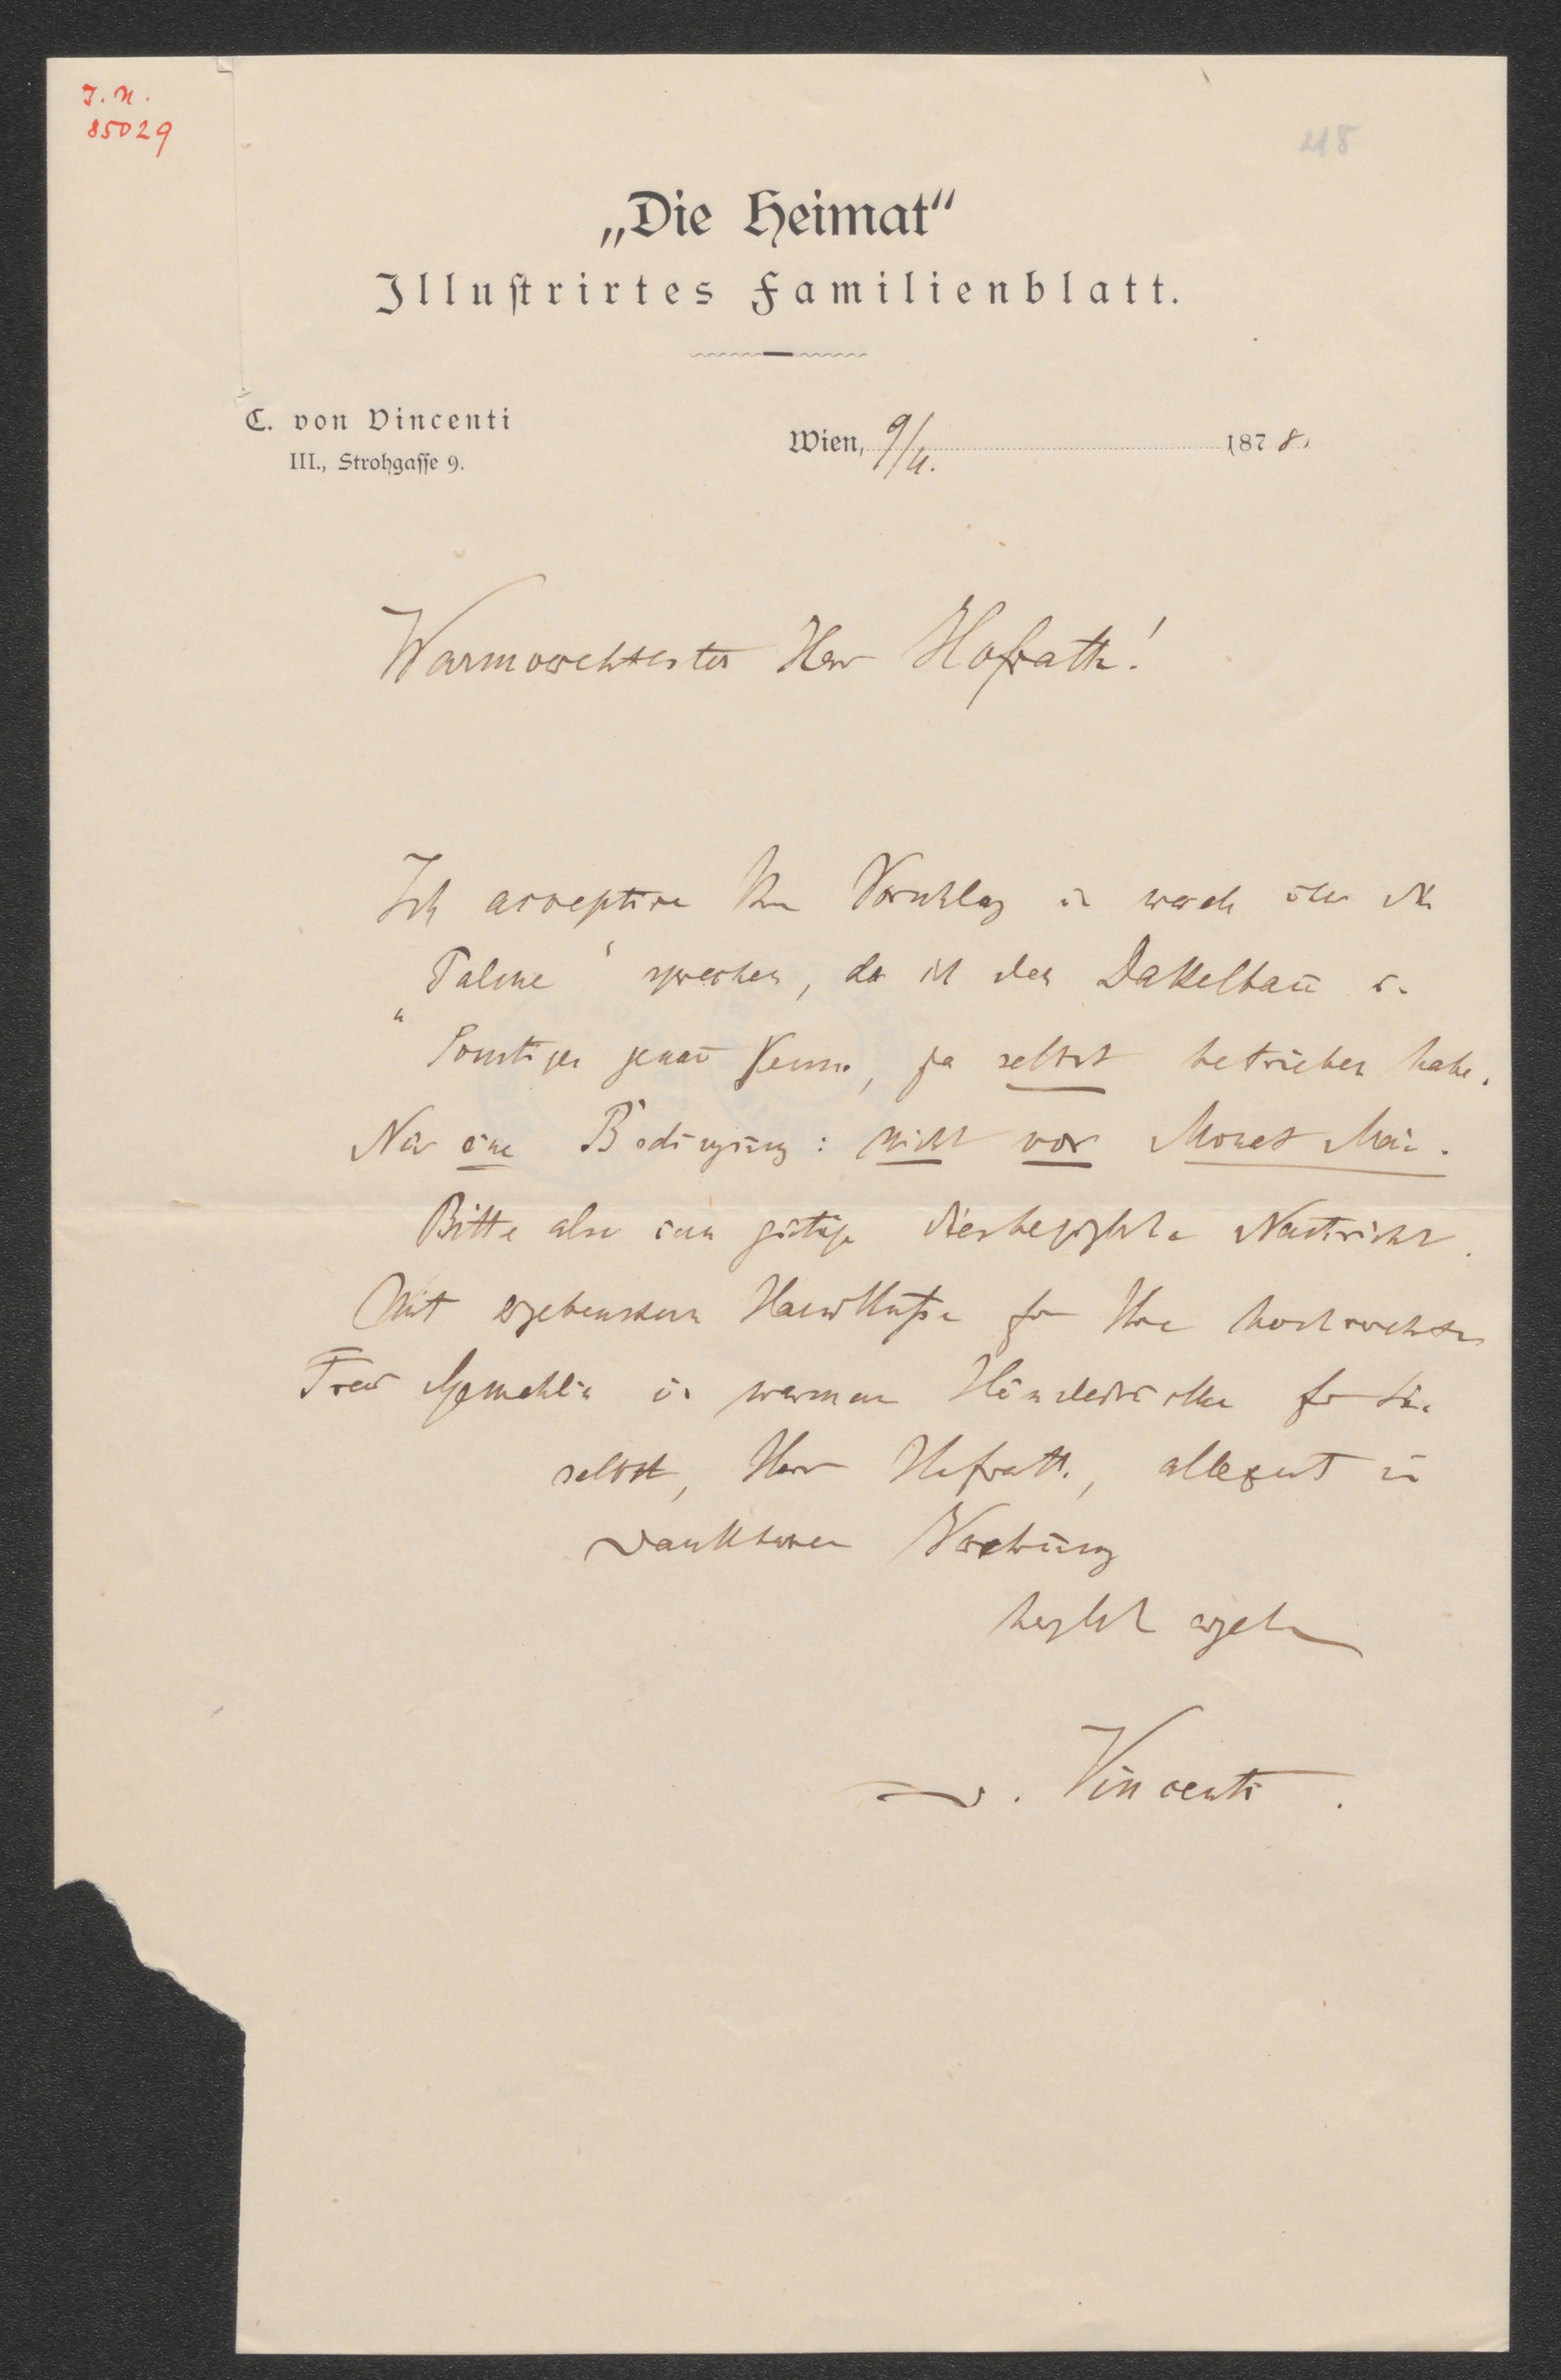 I. N.
85029
218
„Die Heimat“
Illustrirtes Familienblatt.
C. von Vincenti
III., Strohgasse 9.
Wien, 9/4. 1878.
Warmverehrtester Herr Hofrath!
Ich acceptire Ihren Vorschlag u. werde über die
„Palme“ sprechen, da ich den Dattelbau u.
Sonstiges genau kenne, ja selbst betrieben habe.
Nur eine Bedingung: nicht vor Monat Mai.
Bitte also um gütige diesbezügliche Nachricht.
Mit ergebenstem Handkusse für Ihre hochverehrte
Frau Gemahlin u. warmem Händedrucke für Sie
selbst, Herr Hofrath, allezeit in
dankbarer Verehrung
herzlich ergeben
v. Vincenti.